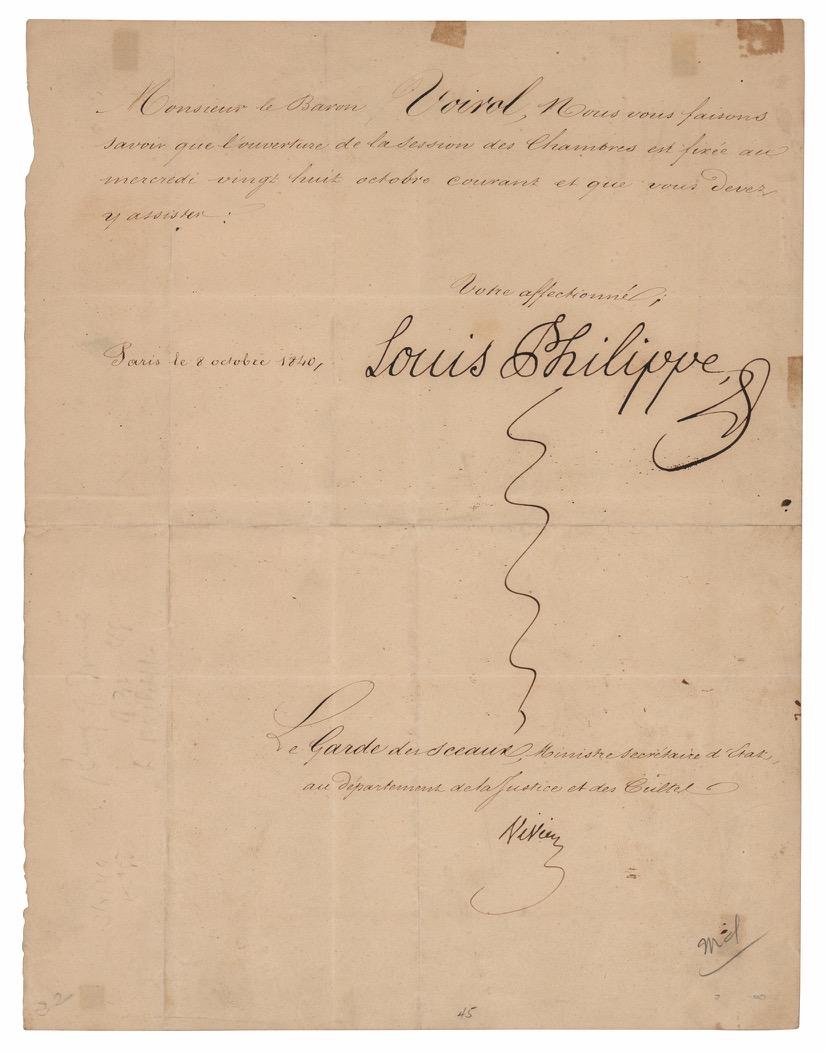 Monsieur le Baron Voirol, Nous vous faisons
savoir que l'ouverture de la Session des Chambres est fixée au
mercredi vingt huit octobre courant et que vous devez
y assister :
Votre affectionné,
Paris le 8 octobre 1840,
Louis Philippe,
Le Garde des sceaux, Ministre secrétaire d'Etat,
au département de la Justice et des Cultes
Vivien
45
32